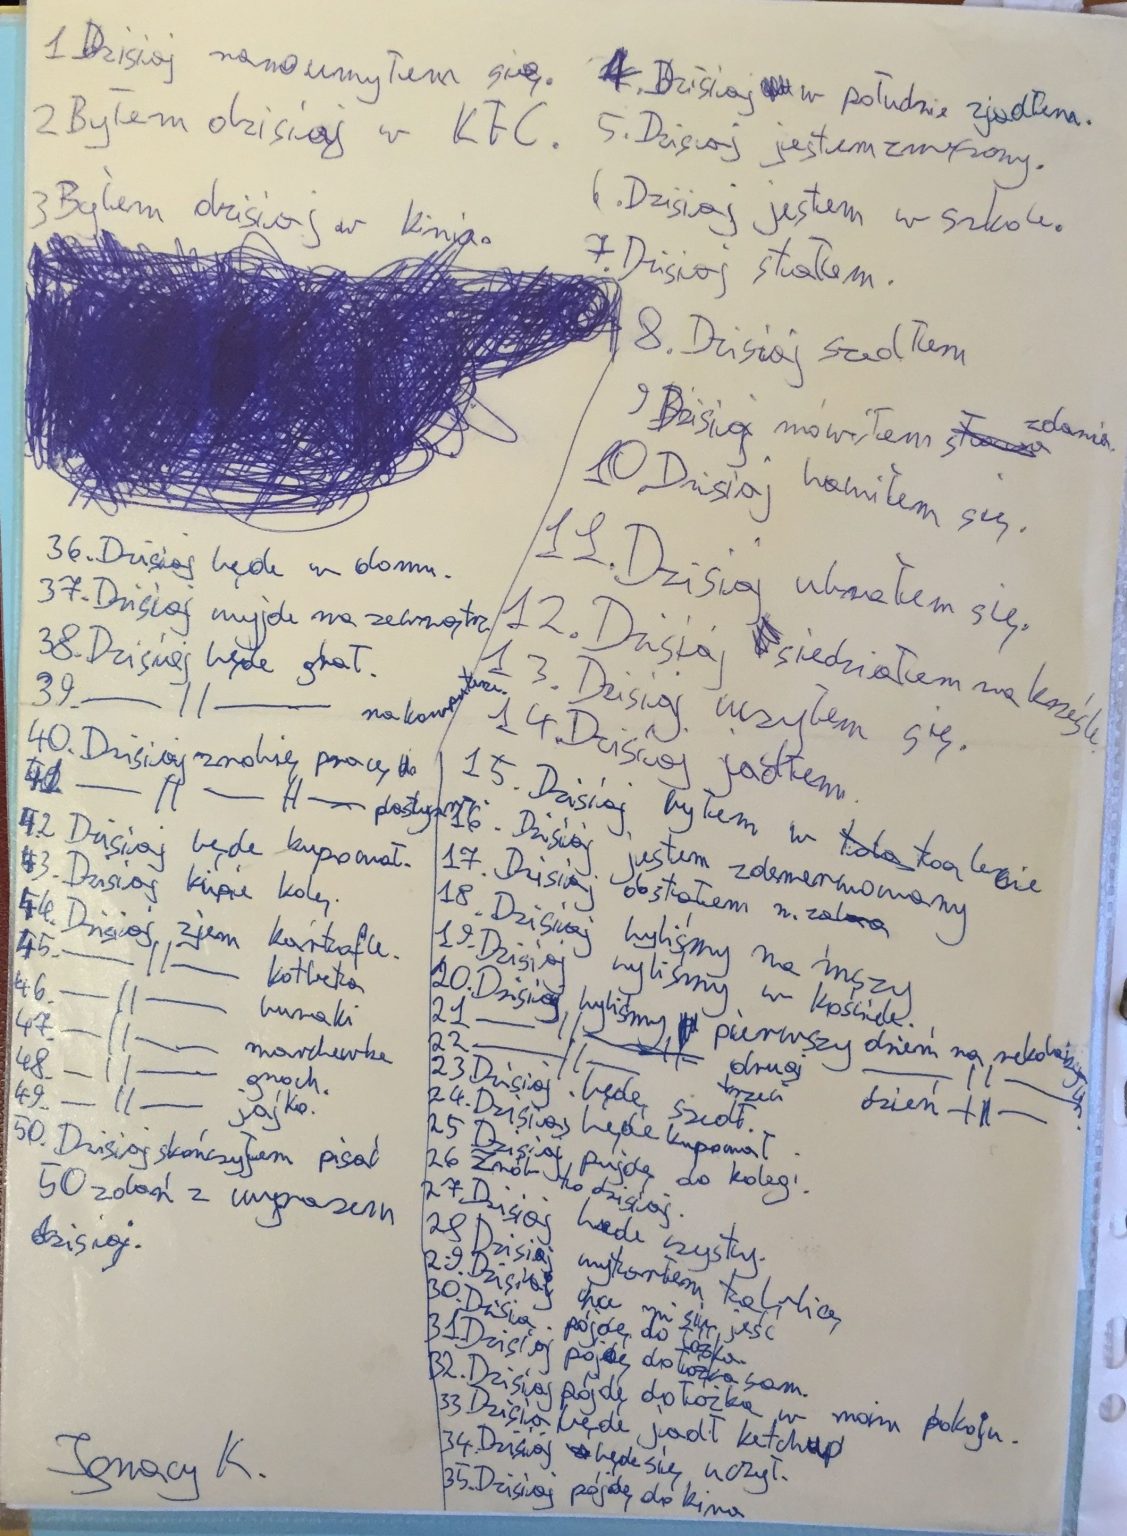 1 Dzisiaj rano umyłem się.
2 Byłem dzisiaj w KFC.
3 Byłem dzisiaj w kinie.
4. Dzisiaj w południe zjadłem.
5. Dzisiaj jestem zmęczony.
6. Dzisiaj jestem w szkole.
7. Dzisiaj stałem.
8. Dzisiaj szedłem
9 Dzisiaj mówiłem zdania.
10 Dzisiaj bawiłem się.
11. Dzisiaj ubrałem się.
12. Dzisiaj siedziałem na krześle.
13. Dzisiaj uczyłem się.
14. Dzisiaj jadłem.
15. Dzisiaj byłem w toalecie
16. Dzisiaj jestem zdenerwowany
17. Dzisiaj obstałem
18. Dzisiaj byliśmy na mszy
19. Dzisiaj byliśmy w kościele.
20. Dzisiaj byliśmy pierwszy dzień na rekolekcjach.
21 — // — drugi — // —
22 — // — trzeci dzień — // —
23 Dzisiaj będę szedł.
24. Dzisiaj będę kupował.
25 Dzisiaj pójdę do kolegi.
26 Zrób to dzisiaj.
27. Dzisiaj będe czysty.
28 Dzisiaj wytarłem tablicę
29. Dzisiaj chce mi się jeść
30. Dzisiaj pójdę do łóżka.
31 Dzisiaj pójdę do łóżka sam.
32. Dzisiaj pójdę do łóżka w moim pokoju.
33 Dzisiaj będę jadł ketchup
34. Dzisiaj będe się uczył.
35. Dzisiaj pójdę do kina
36. Dzisiaj będe w domu.
37. Dzisiaj wyjde na zewnątrz
38. Dzisiaj będe grał.
39. — // — na komputerze.
40. Dzisiaj zrobię pracę do
41 — // — // —
42 Dzisiaj będe kupował.
43. Dzisiaj kupie kolę.
44. Dzisiaj zjem kartofle.
45. — // — kotleta
46. — // — buraki
47. — // — marchewke
48. — // — groch.
49. — // — jajko.
50. Dzisiaj skończyłem pisać
50 zdań z wyrazem
dzisiaj.
Ignacy K.